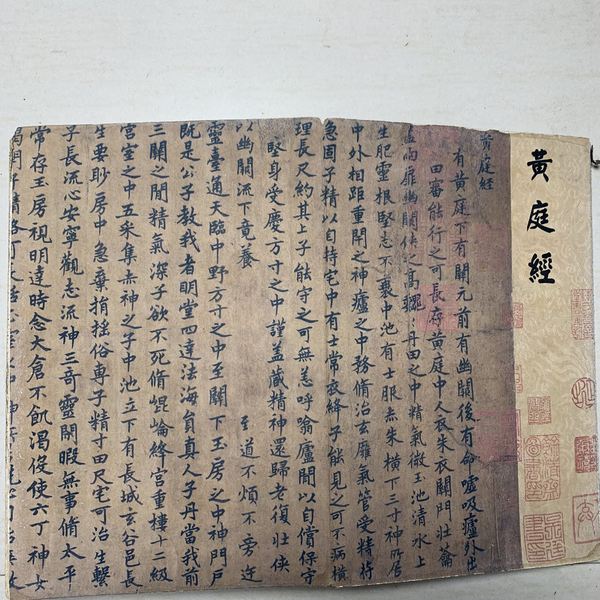 黃庭經
黃庭經
有黃庭下有關元前有幽關後有命噓吸廬外出
田審能行之可長存黃庭中人衣朱衣關門壯籥
兩扉幽關俠之高巍丹田之中精氣微玉池清水上
生肥靈根堅志不衰中池有士服赤朱橫下三寸神所居
中外相距重閉之神廬之中務脩治玄廱氣管受精符
急固子精以自持宅中有士常衣絳子能見之可不病橫
理長尺約其上子能守之可無恙呼翕廬間以自償保守
堅身受慶方寸之中謹蓋藏精神還歸老復壯俠
以幽關流下竟養
至道不煩不旁迕
靈臺通天臨中野方寸之中至關下玉房之中神門戶
既是公子教我者明堂四達法海員真人子丹當我前
三關之間精氣深子欲不死脩崐崘絳宮重樓十二級
宮室之中五采集赤神之子中池立下有長城玄谷邑長
生要眇房中急棄捐搖俗專子精寸田尺宅可治生繫
子長流心安寧觀志流神三奇靈閑暇無事脩太平
常存玉房視明達時念大倉不飢渴伇使六丁神女